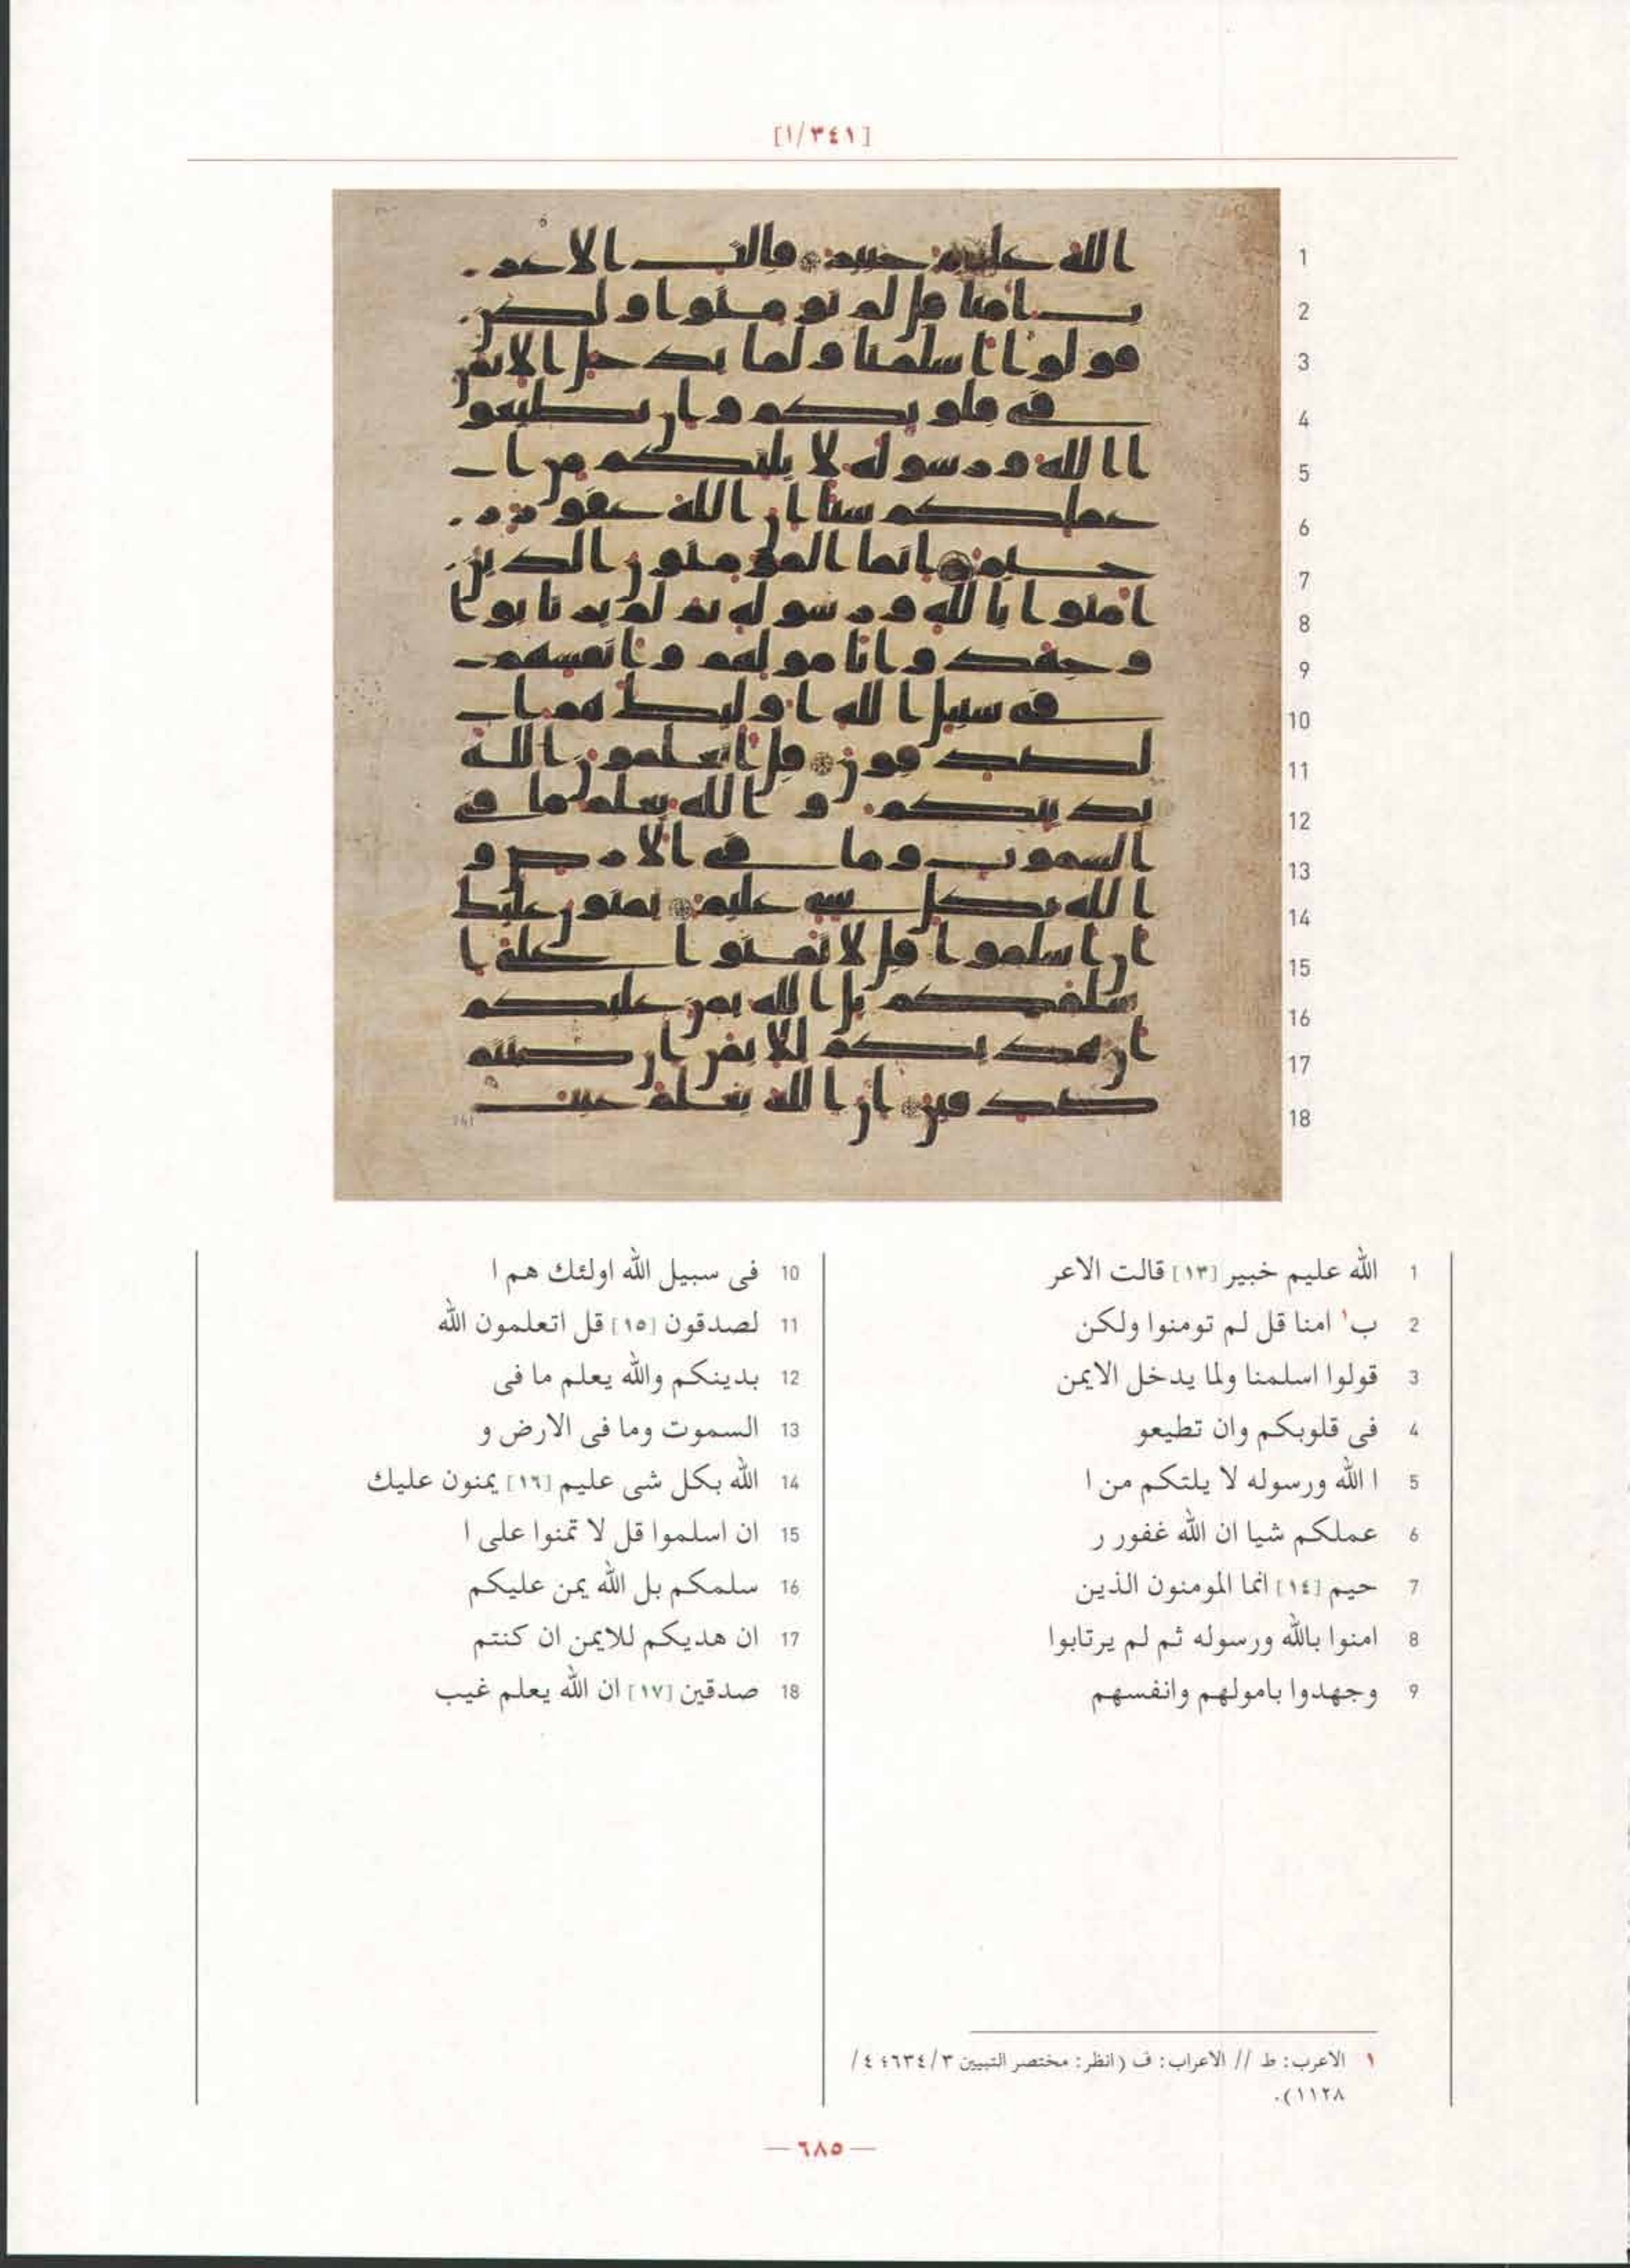 [١/٣٤١]
1 الله عليم خبير [١٣] قالت الاعر
2 ب١ امنا قل لم تومنوا ولكن
3 قولوا اسلمنا ولما يدخل الايمن
4 فى قلوبكم وان تطيعو
5 ا الله ورسوله لا يلتكم من ا
6 عملكم شيا ان الله غفور ر
7 حيم [١٤] انما المومنون الذين
8 امنوا بالله ورسوله ثم لم يرتابوا
9 وجهدوا بامولهم وانفسهم
10 فى سبيل الله اولئك هم ا
11 لصدقون [١٥] قل اتعلمون الله
12 بدينكم والله يعلم ما فى
13 السموت وما فى الارض و
14 الله بكل شى عليم [١٦] يمنون عليك
15 ان اسلموا قل لا تمنوا على ا
16 سلمكم بل الله يمن عليكم
17 ان هديكم للايمن ان كنتم
18 صدقين [١٧] ان الله يعلم غيب
١ الاعرب: ط // الاعراب: ف (انظر: مختصر التبيين ٣/٦٣٤؛ ٤/
١١٢٨).
— ٦٨٥ —